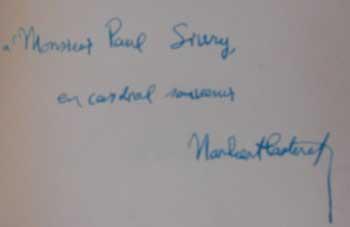 a Monsieur Paul Sivry,
en cordial souvenir
Norbert Casteret